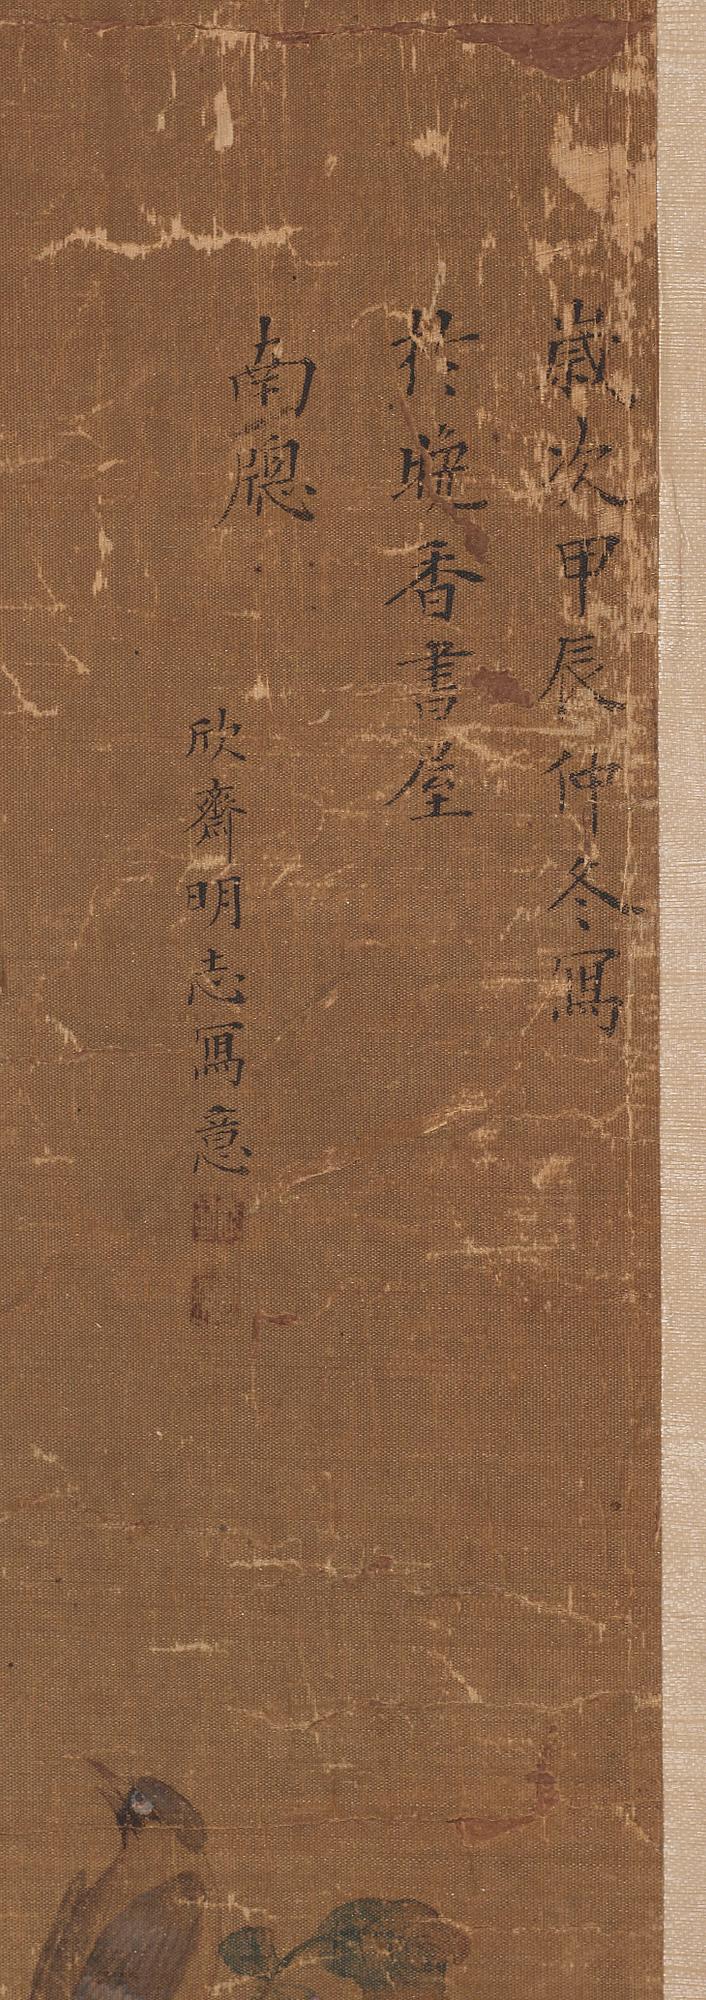 歲次甲辰仲冬寫
於晚香書屋
南窻
欣齋明志寫意